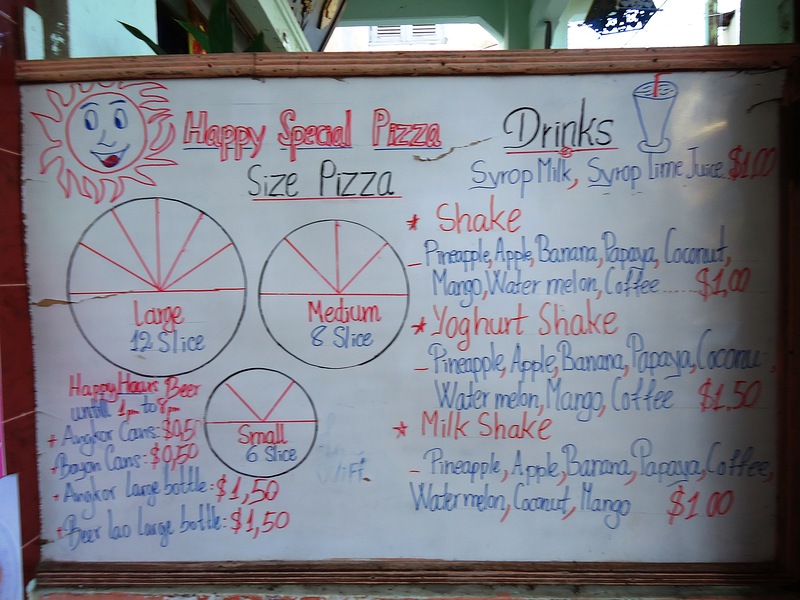 Happy Special Pizza
Size Pizza
Large
12 Slice
Medium
8 Slice
Small
6 Slice
Happy Hours Beer
untill 1pm to 8pm
+ Angkor Cans: $0,50
+ Bayon Cans: $0,50
+ Angkor large bottle: $1,50
+ Beer lao large bottle: $1,50
Drinks
Syrop Milk, Syrop Lime Juice $1,00
* Shake
- Pineapple, Apple, Banana, Papaya, Coconut,
Mango, Water melon, Coffee ...... $1,00
* Yoghurt Shake
- Pineapple, Apple, Banana, Papaya, Coconu
Water melon, Mango, Coffee $1,50
* Milk Shake
- Pineapple, Apple, Banana, Papaya, Coffee,
Water melon, Coconut, Mango $1 00